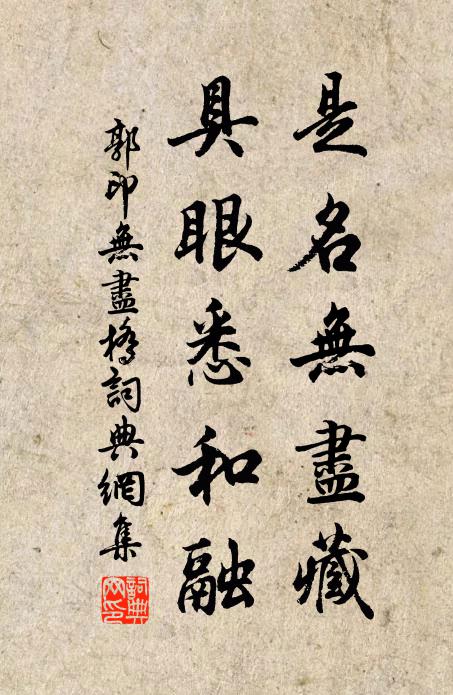 是名無盡藏
具眼悉和融
郭印無盡橋詞典網集
詞典網印